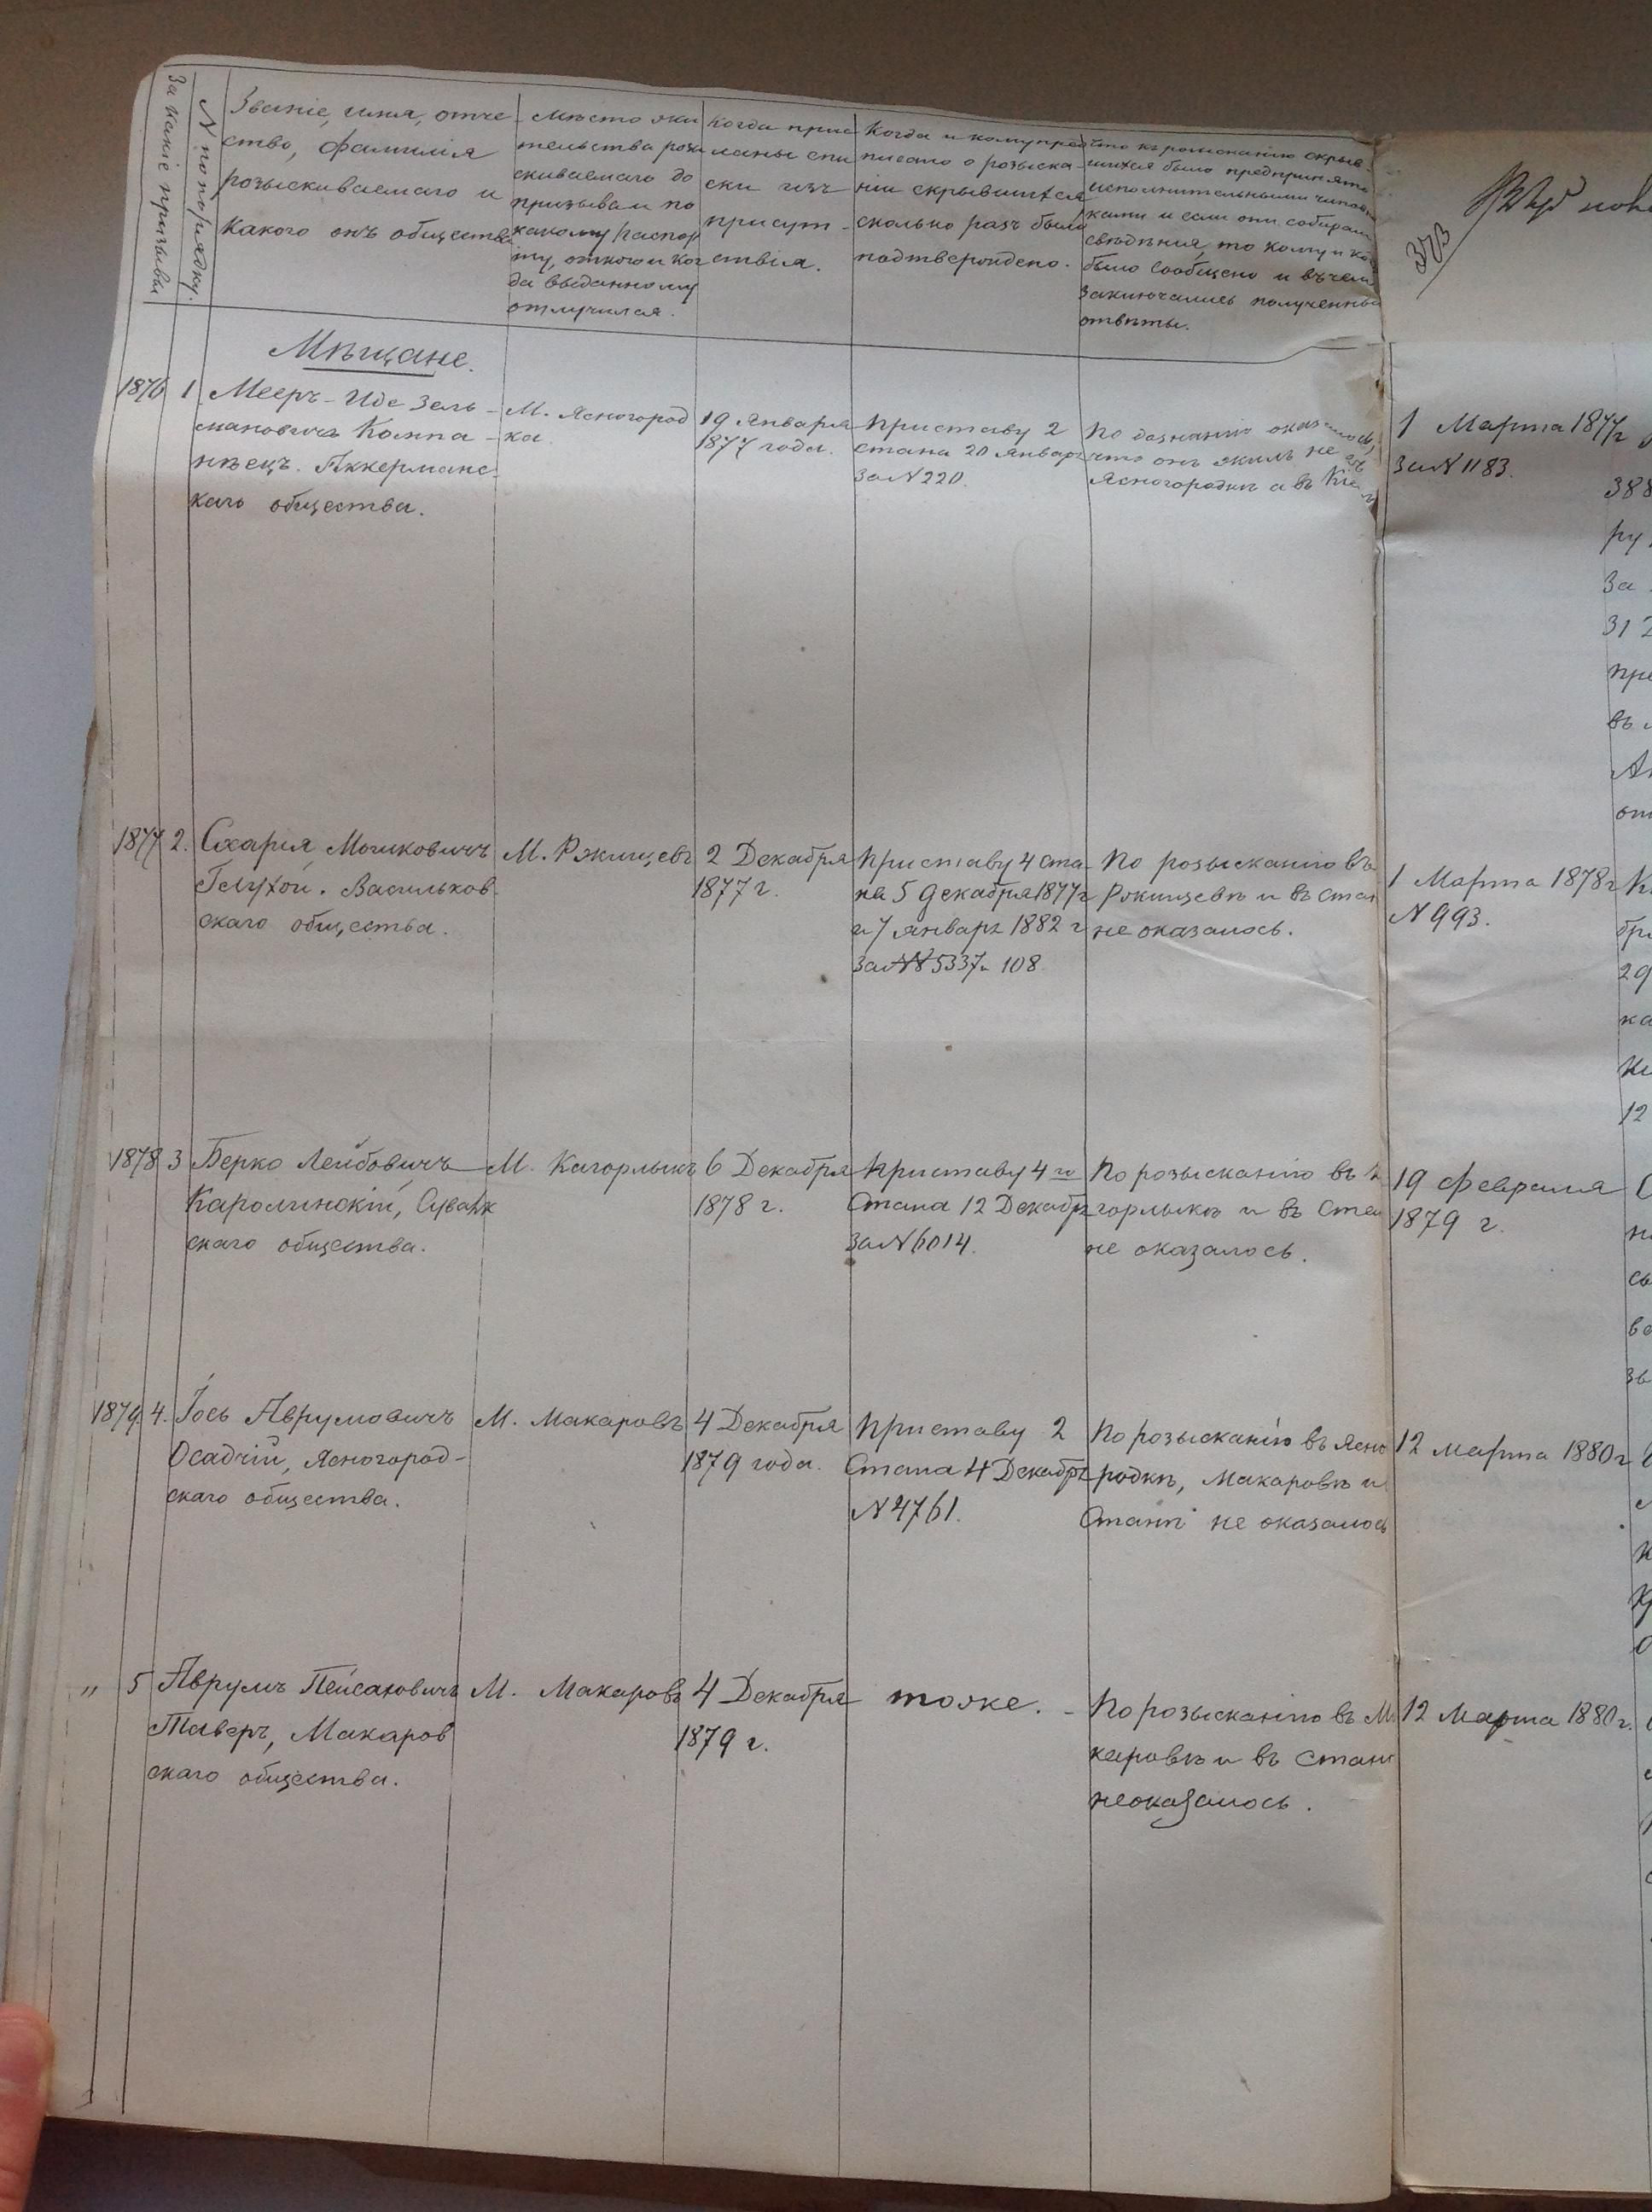 За какіе призывы
№ по порядку.
Званіе, имя, отче-
ство, фамилія
розыскиваемаго и
какого онъ общества
Мѣсто жи
тельства розы
скиваемаго до
призыва и по
какому паспор
ту, отъ кого и ког
да выданному
отлучился.
Когда прис
ланы спи
ски изъ
присут-
ствія.
Когда и кому пред
писано о розыска-
ніи скрывшихся
сколько разъ было
подтверждено.
Что къ розысканію скрыв-
шихся было предпринято
исполнительными чинов
ками и если они собирали
свѣдѣнія, то кому и ког
было сообщено и въ чемъ
заключались полученны
отвѣты.
373
Мѣщане.
1876 1 Мееръ-Иде Зель-
мановичъ Компа-
нѣецъ. Аккерманс-
каго общества.
М. Ясногород
ка.
19 Января
1877 года.
Приставу 2
стана 20 Января
за № 220.
По дознанію оказалось,
что онъ жилъ не въ
Ясногородкѣ а въ Кіе
1 Марта 1877 г
за № 1183.
388
ру
За
31
пре
въ
1877 2. Сахарія Мошковичъ
Глухой. Васильков-
скаго общества.
М. Ржищевъ
2 Декабря
1877 г.
Приставу 4 ста-
на 5 декабря 1877 г
и 7 января 1882 г
за №№ 5337 и 108.
По розысканію въ
Ржищевѣ и въ стан
не оказалось.
1 Марта 1878 г
№ 993.
29
ка
12
1878 3 Берко Лейбовичъ
Каролинскій,
скаго общества.
М. Кагорлыкъ
6 Декабря
1878 г.
Приставу 4 го
Стана 12 Декабря
за № 6014.
По розысканію въ К
горлыкѣ и въ Стан
не оказалось.
19 февраля
1879 г.
1879. 4. Іось Аврумовичъ
Осадчій, Ясногород-
скаго общества.
М. Макаровъ
4 Декабря
1879 года.
Приставу 2
Стана 4 Декабря
№ 4761.
По розысканію въ Ясно
родкѣ, Макаровѣ и
Станѣ не оказалось
12 марта 1880 г
" 5 Аврумъ Пейсаховичъ
Таверъ, Макаров
скаго общества.
М. Макаровъ
4 Декабря
1879 г.
тоже. -
По розысканію въ М
каровѣ и въ Стан
неоказалось.
12 Марта 1880 г.